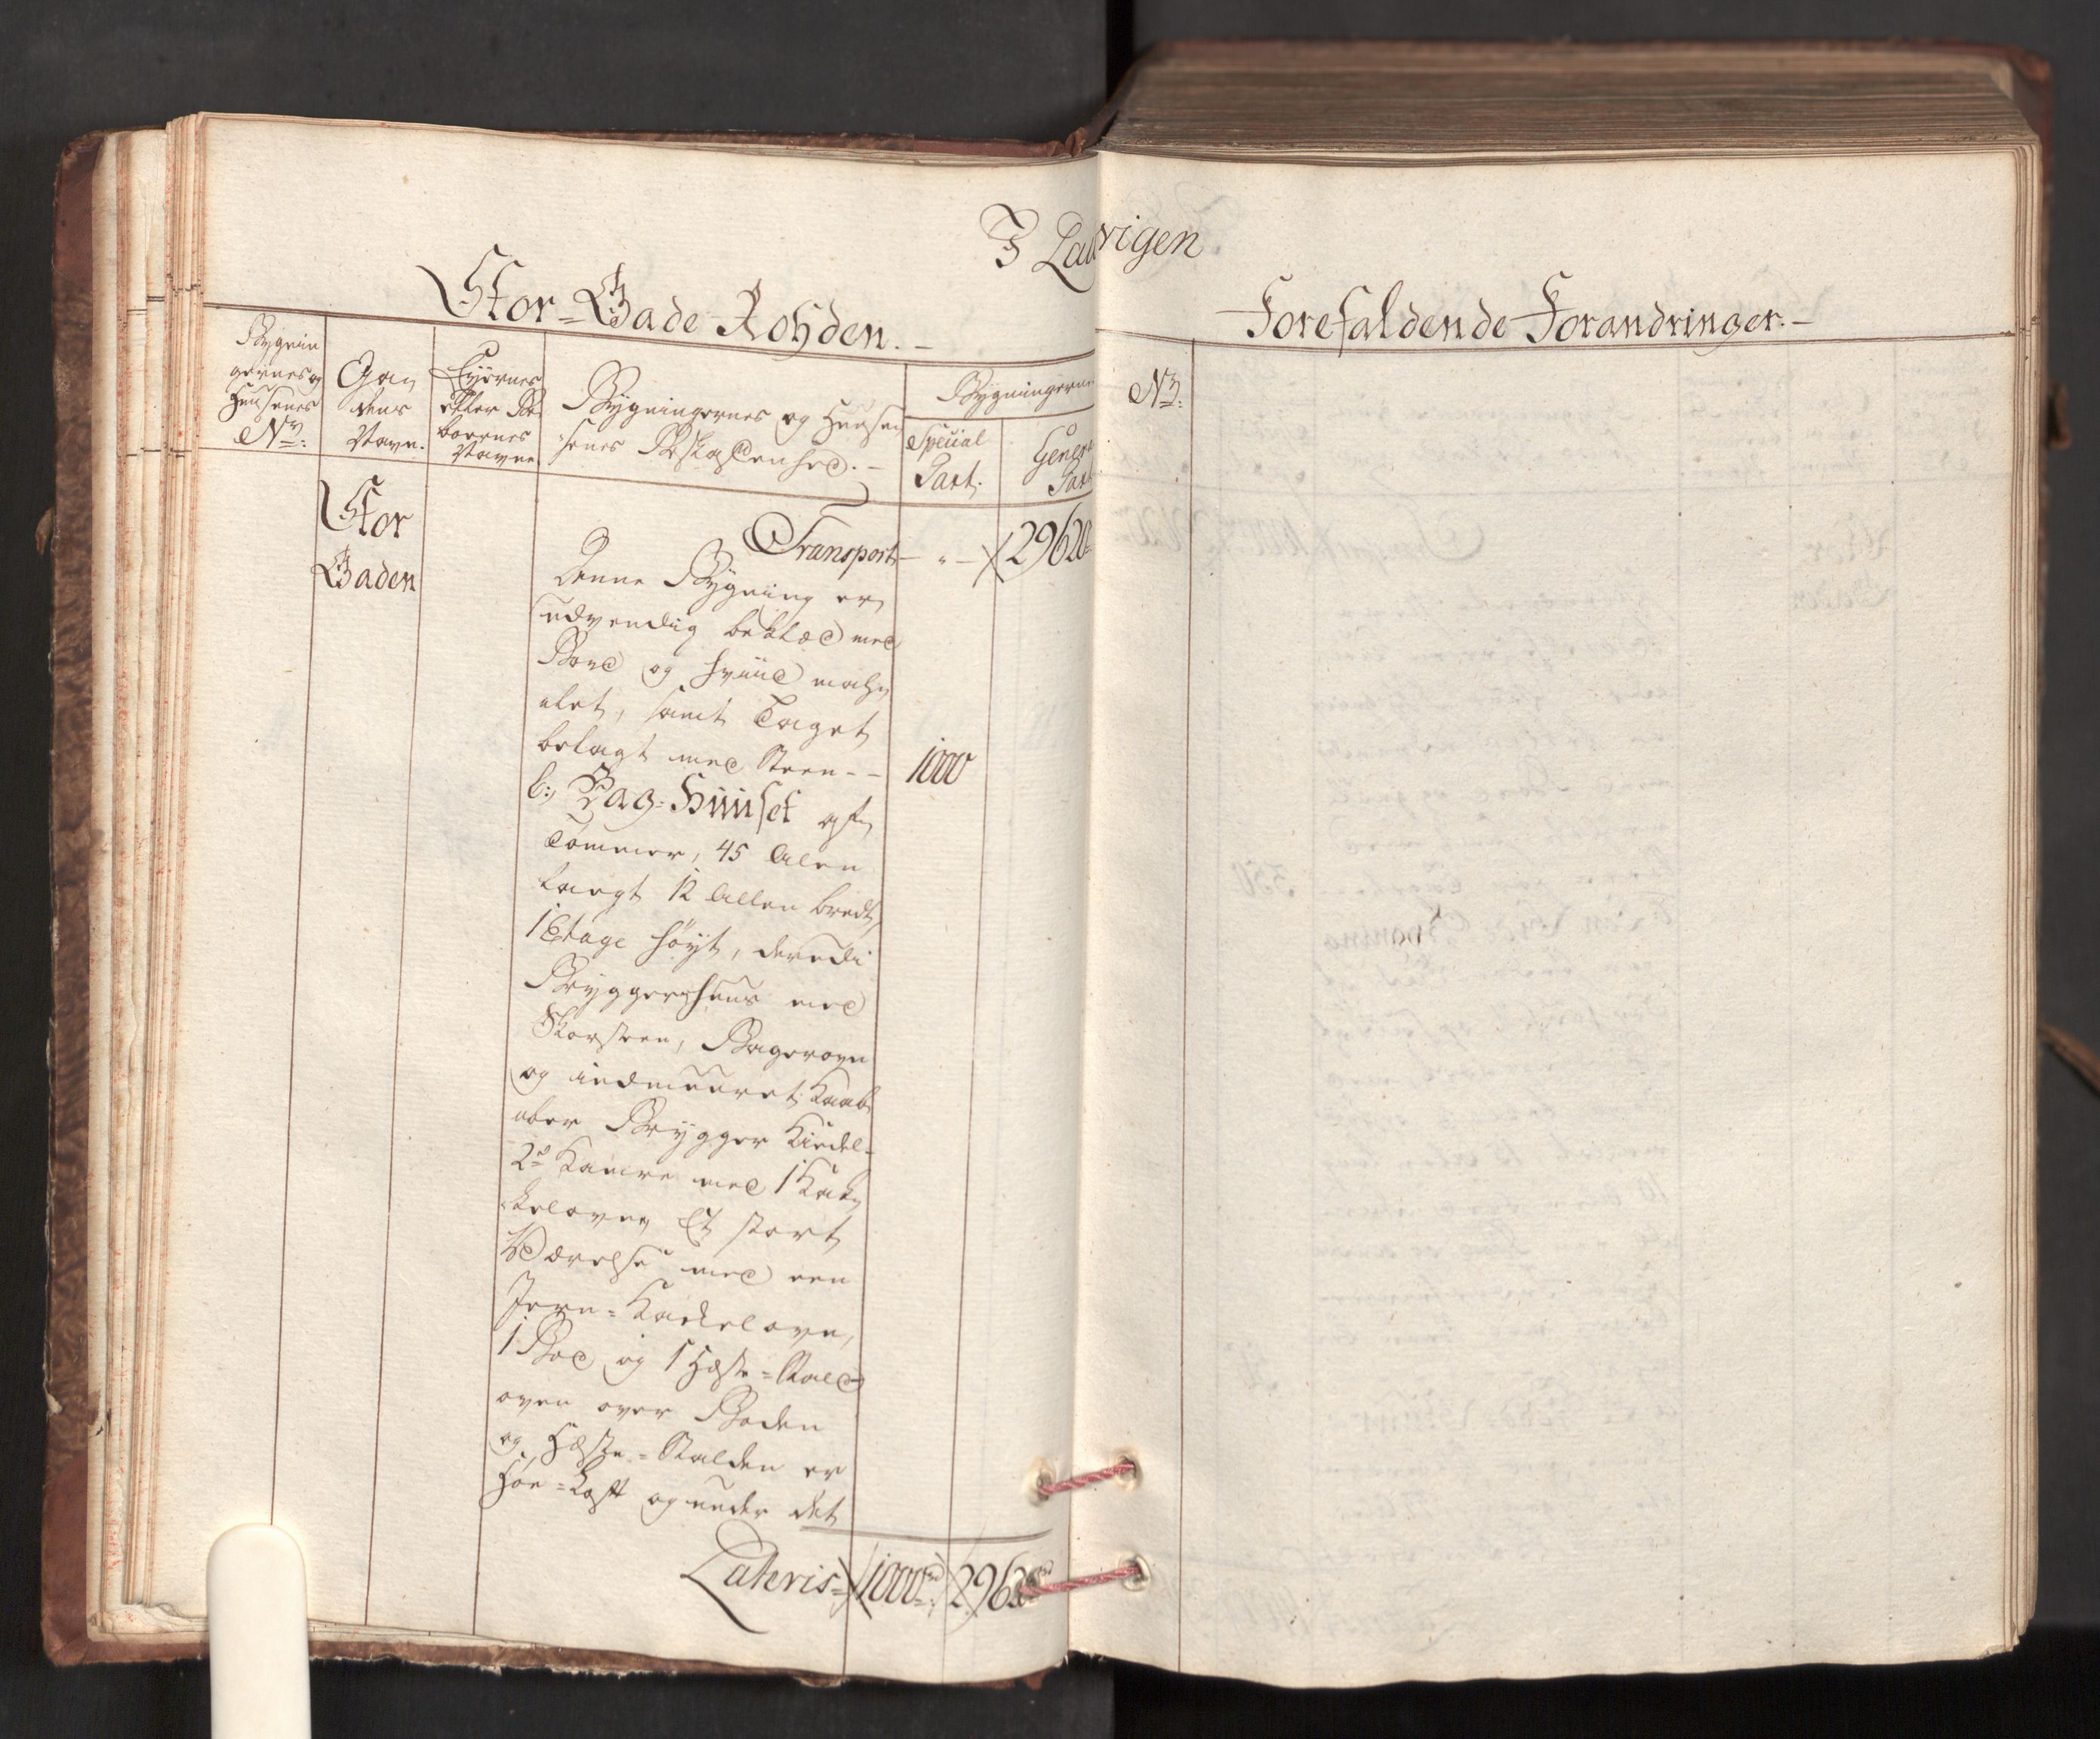 I Laurvigen
Stor-Gade Rohden.-
Forefaldende Forandringer.-
Bygnin
gernes og
Huusenes
No:
Ga
dens
Navn.
Eyernes
eller Be
boernes
Navne
Bygningernes og Huu
senes Beskaffenhed.-
Bygningerne
Special
Taxt.
Genera
Taxt
No:
Stor
Gaden
Transport - " - 29620
Denne Bygning er
udvendig beklæd med
Bord og hviid mah
elet, samt Taget
belagt med Steen-- 1000
b: Bag-Huuset af
Tømmer, 45 Alen
langt 12 Allen bredt,
1 Etage høyt, derudi
Bryggershuus med
Skorsteen, Bagerovn
og indmuuret Kaab
ber Brygger Kiedel-
2de Kamre med 1 Kak
kelovn, Et stort
Værelse med een
Jern-Kackelovn,
1 Boe og 1 Heste-Stald
oven over Boden
og Heste-Stalden er
Høe-Loft og under det
Lateris- 1000rd: 29620rd